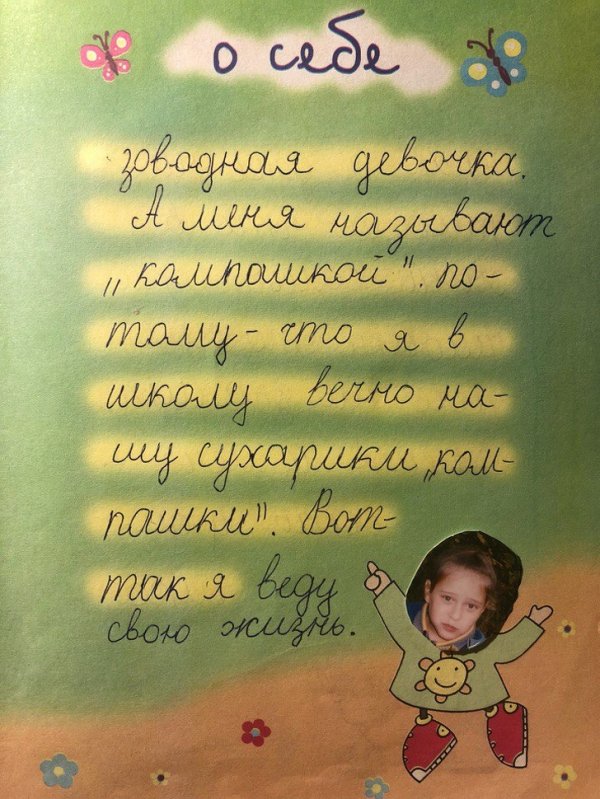 о себе
зоводная девочка.
А меня называют
„компашкой". по-
тому-что я в
школу вечно на-
шу сухарики „ком-
пашки". Вот-
так я веду
свою жизнь.